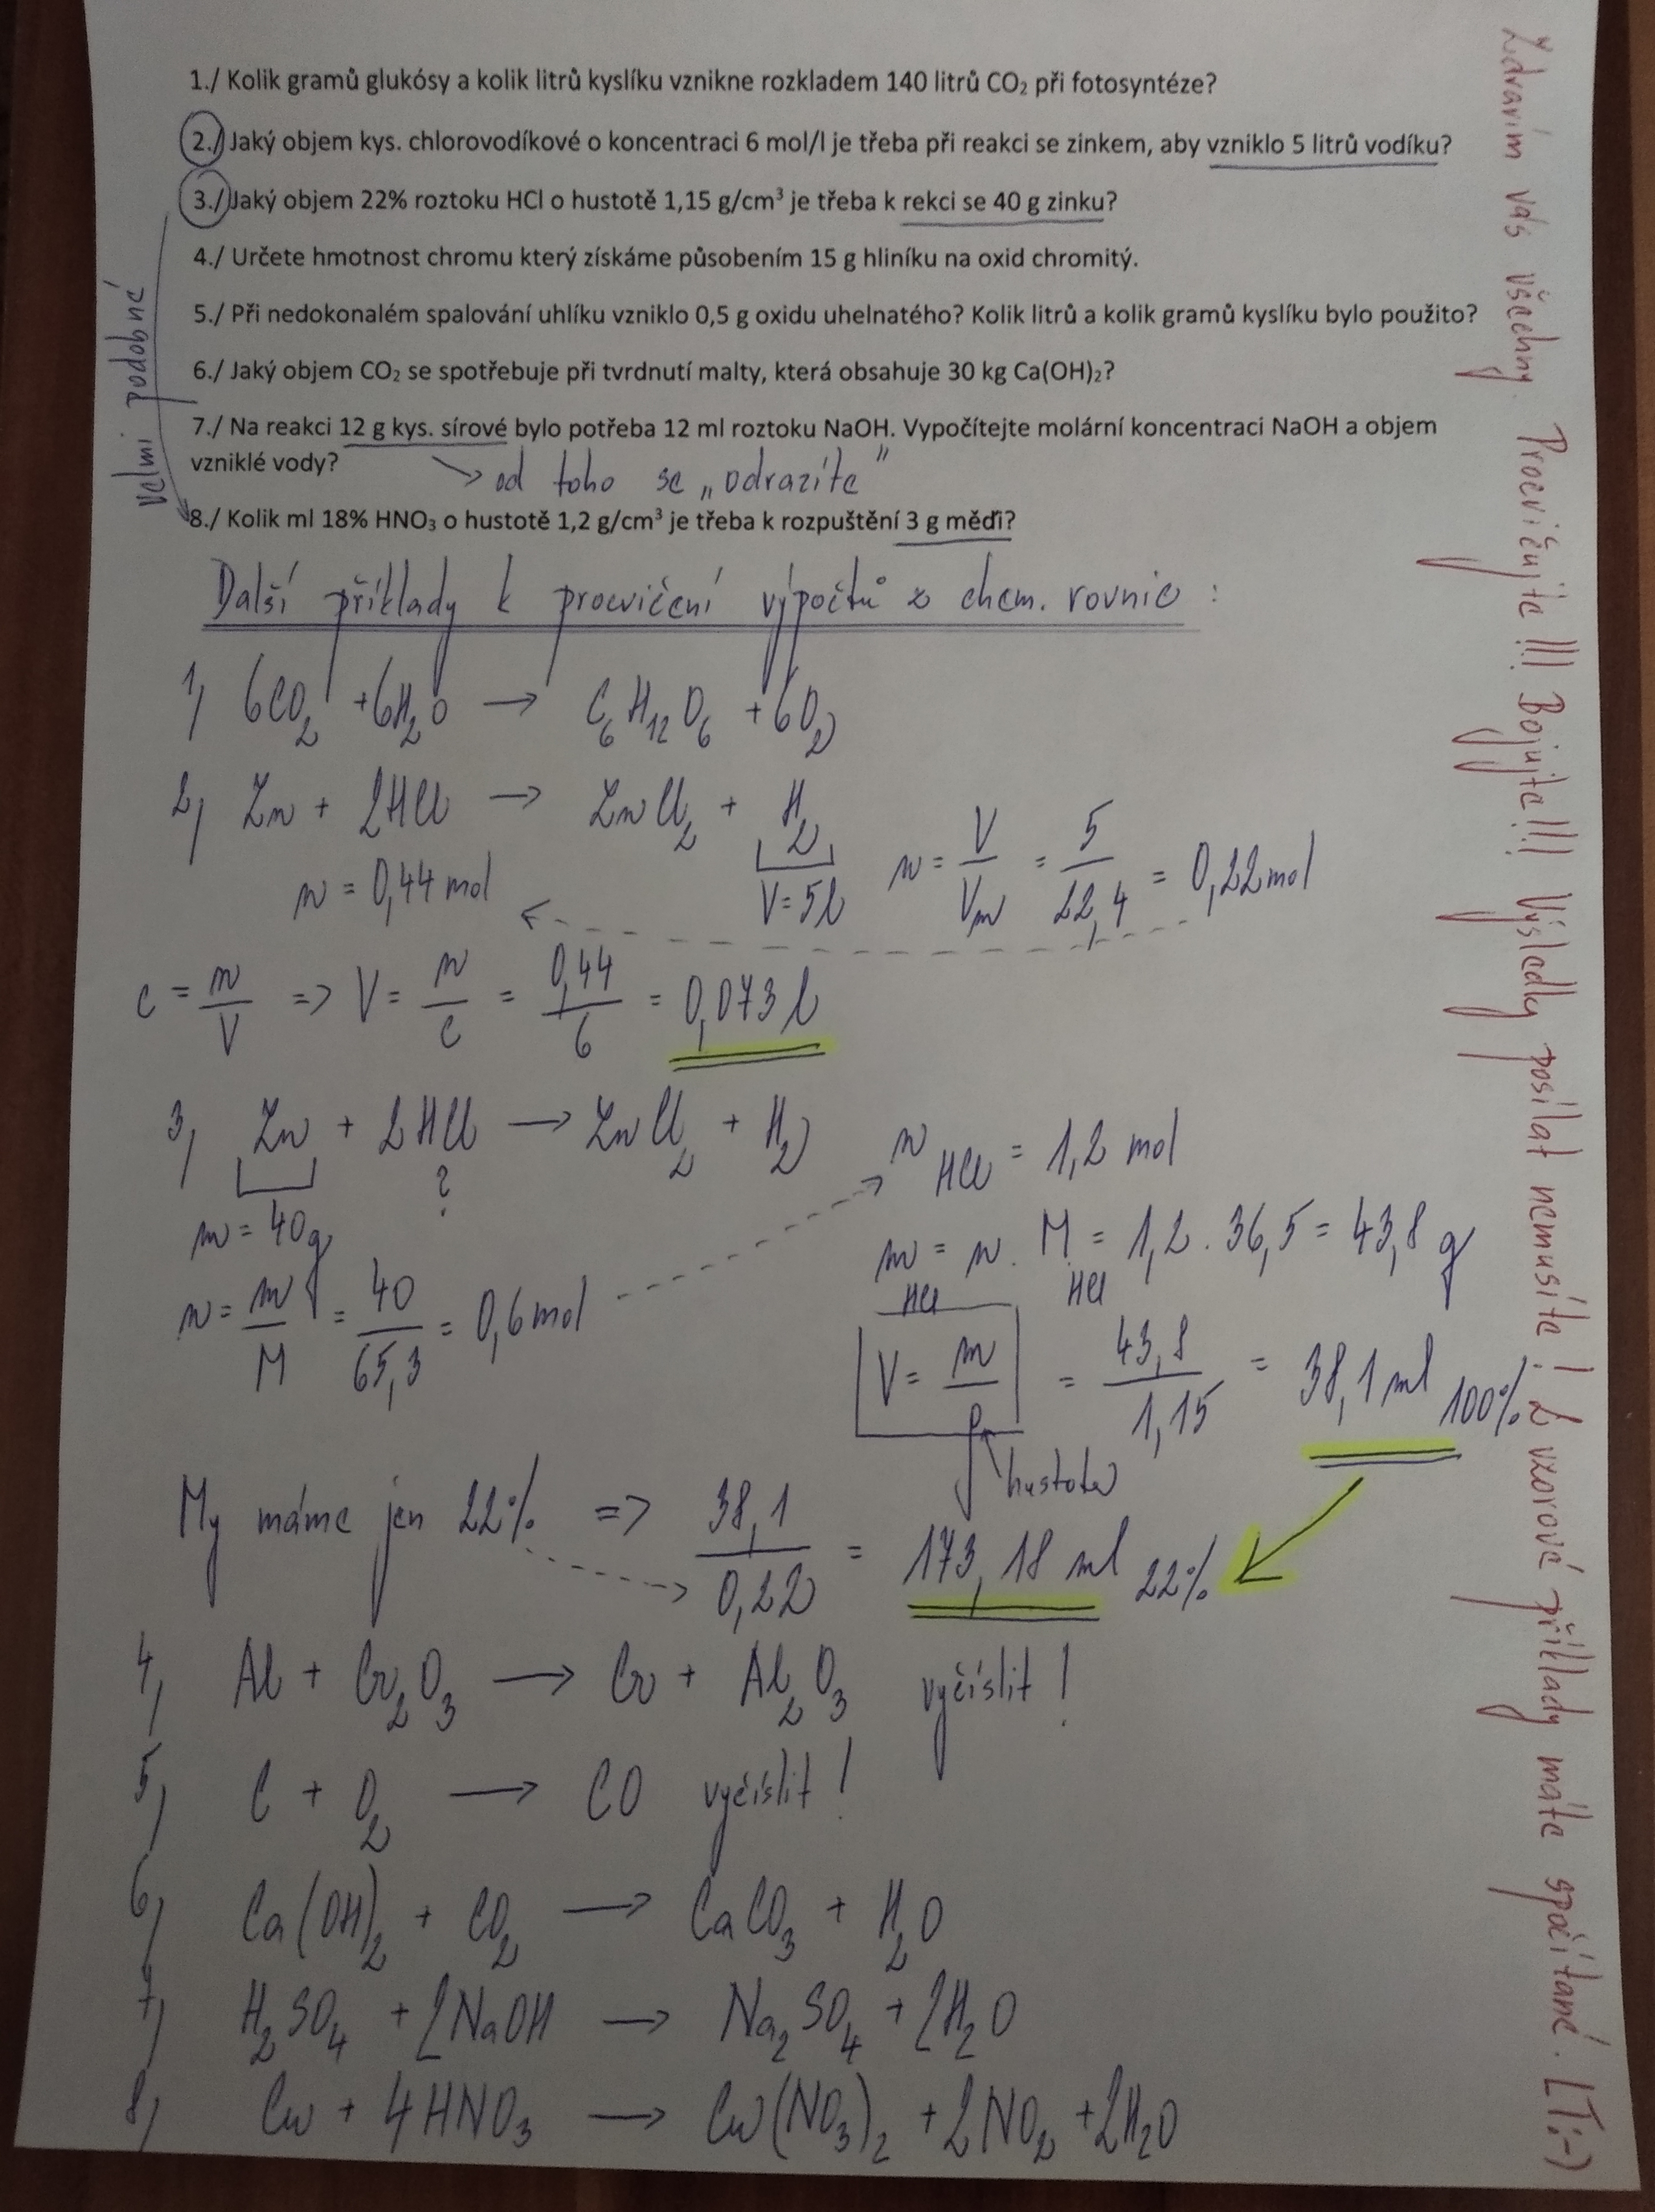 1./ Kolik gramů glukósy a kolik litrů kyslíku vznikne rozkladem 140 litrů CO₂ při fotosyntéze?
2./ Jaký objem kys. chlorovodíkové o koncentraci 6 mol/l je třeba při reakci se zinkem, aby vzniklo 5 litrů vodíku?
3./ Jaký objem 22% roztoku HCl o hustotě 1,15 g/cm³ je třeba k rekci se 40 g zinku?
4./ Určete hmotnost chromu který získáme působením 15 g hliníku na oxid chromitý.
5./ Při nedokonalém spalování uhlíku vzniklo 0,5 g oxidu uhelnatého? Kolik litrů a kolik gramů kyslíku bylo použito?
6./ Jaký objem CO₂ se spotřebuje při tvrdnutí malty, která obsahuje 30 kg Ca(OH)₂?
7./ Na reakci 12 g kys. sírové bylo potřeba 12 ml roztoku NaOH. Vypočítejte molární koncentraci NaOH a objem
vzniklé vody?
→ od toho se „odrazíte"
8./ Kolik ml 18% HNO₃ o hustotě 1,2 g/cm³ je třeba k rozpuštění 3 g mědi?
velmi podobné
Další příklady k procvičení výpočtů z chem. rovnic :
1) 6CO₂ + 6H₂O → C₆H₁₂O₆ + 6O₂
2) Zn + 2HCl → ZnCl₂ + H₂
n = 0,44 mol
V = 5l
n = V/Vm = 5/22,4 = 0,22 mol
c = n/V => V = n/c = 0,44/6 = 0,073 l
3) Zn + 2HCl → ZnCl₂ + H₂
?
m = 40g
n = m/M = 40/65,3 = 0,6 mol
n HCl = 1,2 mol
m HCl = n . M HCl = 1,2 . 36,5 = 43,8 g
V = m/ρ = 43,8/1,15 = 38,1 ml 100%
hustota
My máme jen 22% => 38,1/0,22 = 173,18 ml 22%
4) Al + Cr₂O₃ → Cr + Al₂O₃ vyčíslit!
5) C + O₂ → CO vyčíslit!
6) Ca(OH)₂ + CO₂ → CaCO₃ + H₂O
7) H₂SO₄ + 2NaOH → Na₂SO₄ + 2H₂O
8) Cu + 4HNO₃ → Cu(NO₃)₂ + 2NO₂ + 2H₂O
Zdravím vás všechny. Procvičujte!!! Bojujte!!! Výsledky posílat nemusíte! 2 vzorové příklady máte spočítané. LT:-)